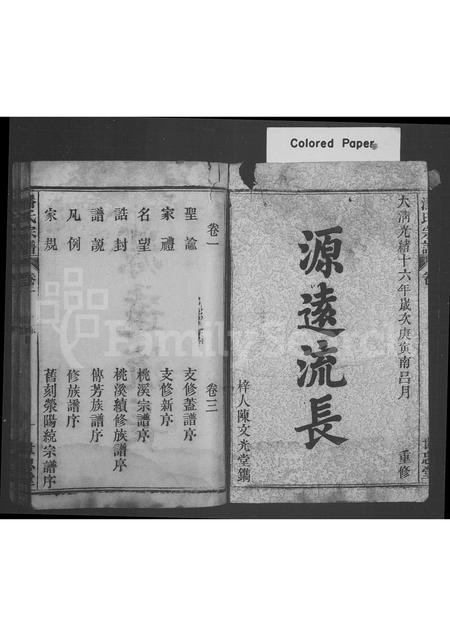 Colored Paper
大清光緒十六年歲次庚寅南呂月 重修
源遠流長
梓人陳文光堂鐫
潘氏宗譜
卷一
聖諭
家禮
名望
誥封
譜說
凡例
家規
卷三
支修蓋譜序
支修新序
桃溪宗譜序
桃溪續修族譜序
傳芳族譜序
修族譜序
舊刻滎陽統宗譜序
FamilySearch